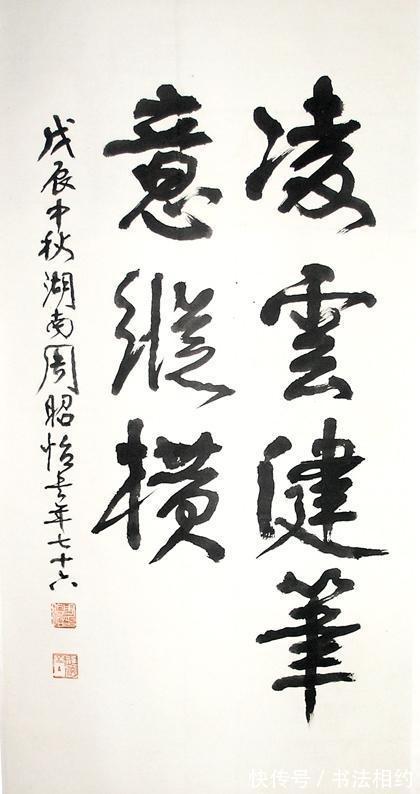 凌雲健筆
意縱橫
戊辰中秋湖南周昭怡書年七十六
快传号/书法相约